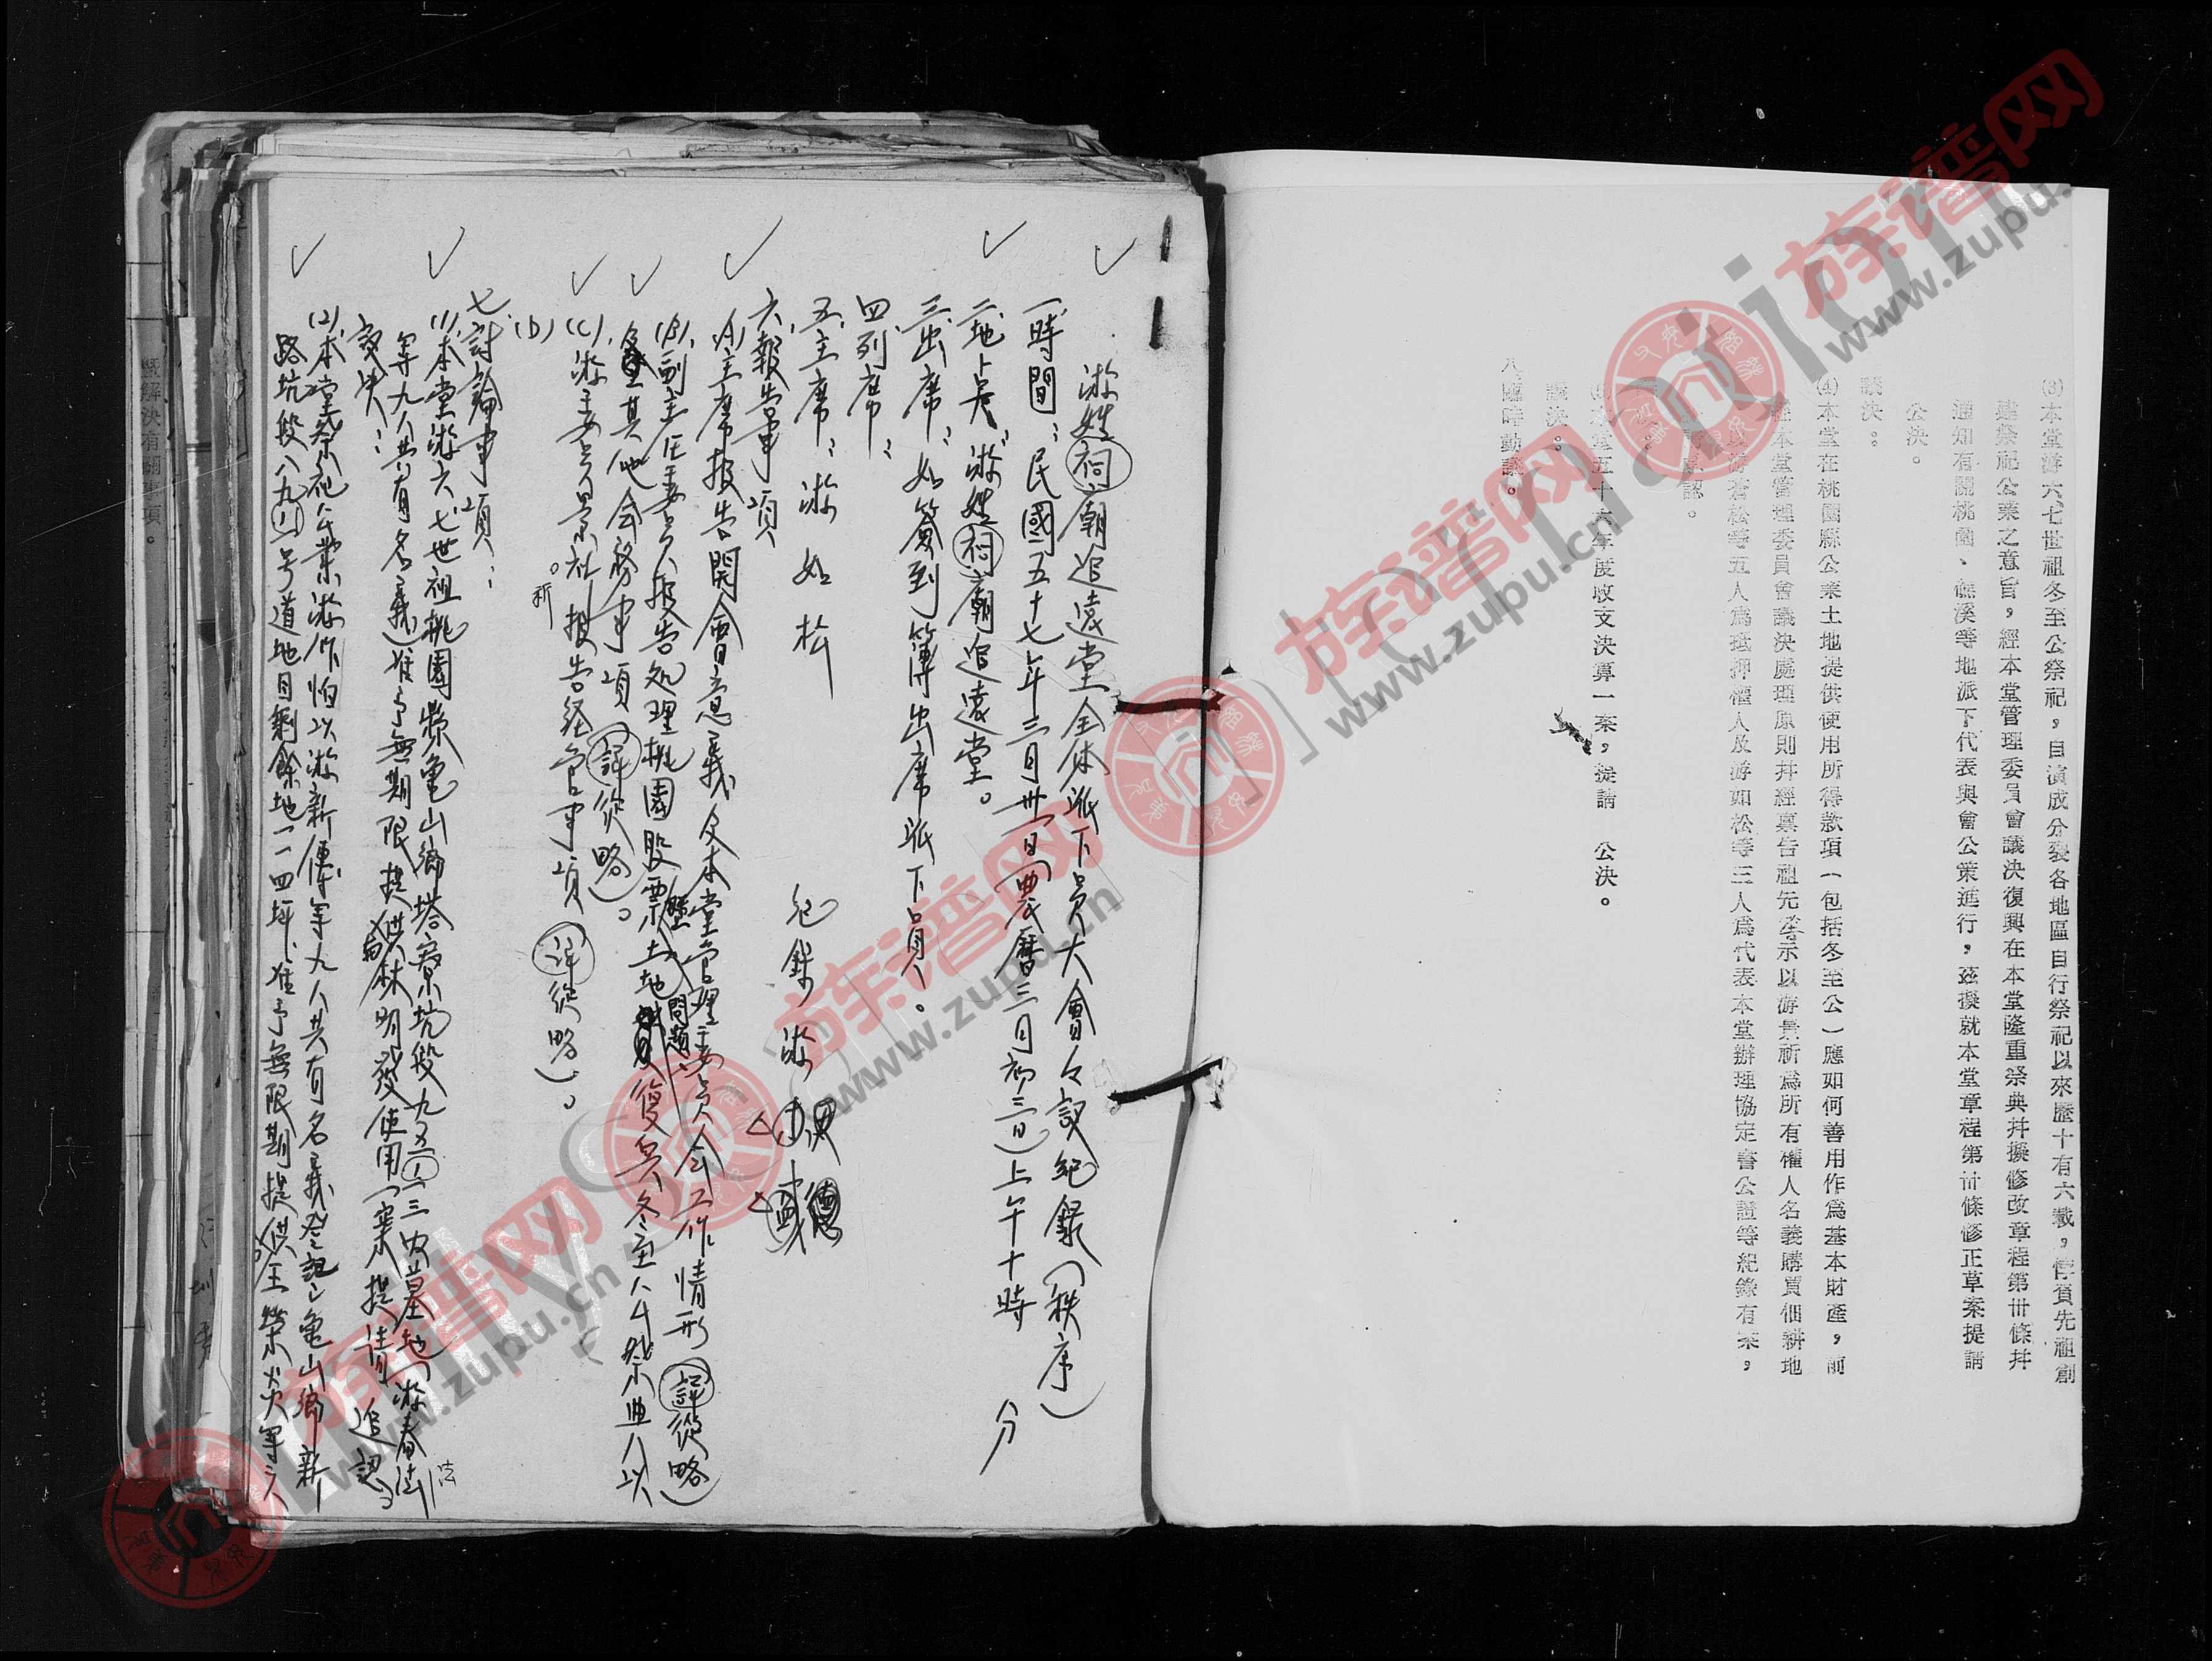 (3)本堂游六七世祖冬至公祭祀，自演成分裂各地區自行祭祀以來歷十有六載，悖負先祖創
建祭祀公業之意旨，經本堂管理委員會議決復興在本堂隆重祭典幷擬修改章程第卅條幷
通知有關桃園、礁溪等地派下代表與會公策進行，茲擬就本堂章程第卅條修正草案提請
公決。
議決：
(4)本堂在桃園縣公業土地提供使用所得款項（包括冬至公）應如何善用作爲基本財產，前
經本堂管理委員會議決處理原則幷經稟告祖先 示以游景祈爲所有權人名義購買佃耕地
以游蒼松等五人爲抵押權人及游如松等三人爲代表本堂辦理協定書公證等紀錄有案，
認。
決：
五十六年度收支決算一案，提請　公決。
議決：
八、臨時動議。
游姓祠廟追遠堂全体派下員大會々議紀錄（秩序）
一、時間：民國五十七年三月卅一日（農曆三月初三日）上午十時　分
二、地點：游姓祠廟追遠堂。
三、出席：如簽到簿出席派下員。
四、列席：
五、主席：游如松　紀錄游
六、報告事項
(A)主席報告開會意義及本堂管理委員会工作情形（詳從略）
(B)副主任委員報告処理桃園股票土地問題 復興冬至公祭典
其他会務事項（詳從略）。
(C)游委員景祈報告経管事項（詳從略）。
(D)
七、討論事項：
(1)本堂游六七世祖桃園縣龜山鄉塔寮坑段 墓地（游春
等九人共有名義）准予無期限提供林明發使用一案提請追認
議決：
(2)本堂祭祀公業 以游新傳等九人共有名義登記之龜山鄉新
路坑段八九 号道地目剩餘地一一四坪、准予無限期提供王榮火等六人
暨解決有關事項。
族谱网
www.zupu.cn